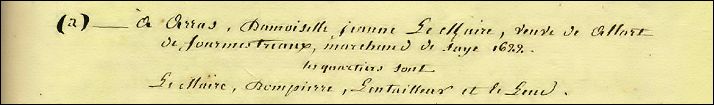 (a) — a Arras, Damoiselle jeanne Le Maire, veuve de Allart
de fourmestreaux, marchand de saye 1622.
les quartiers sont
Le Maire, Dompierre, Lentailleur et le Gend.